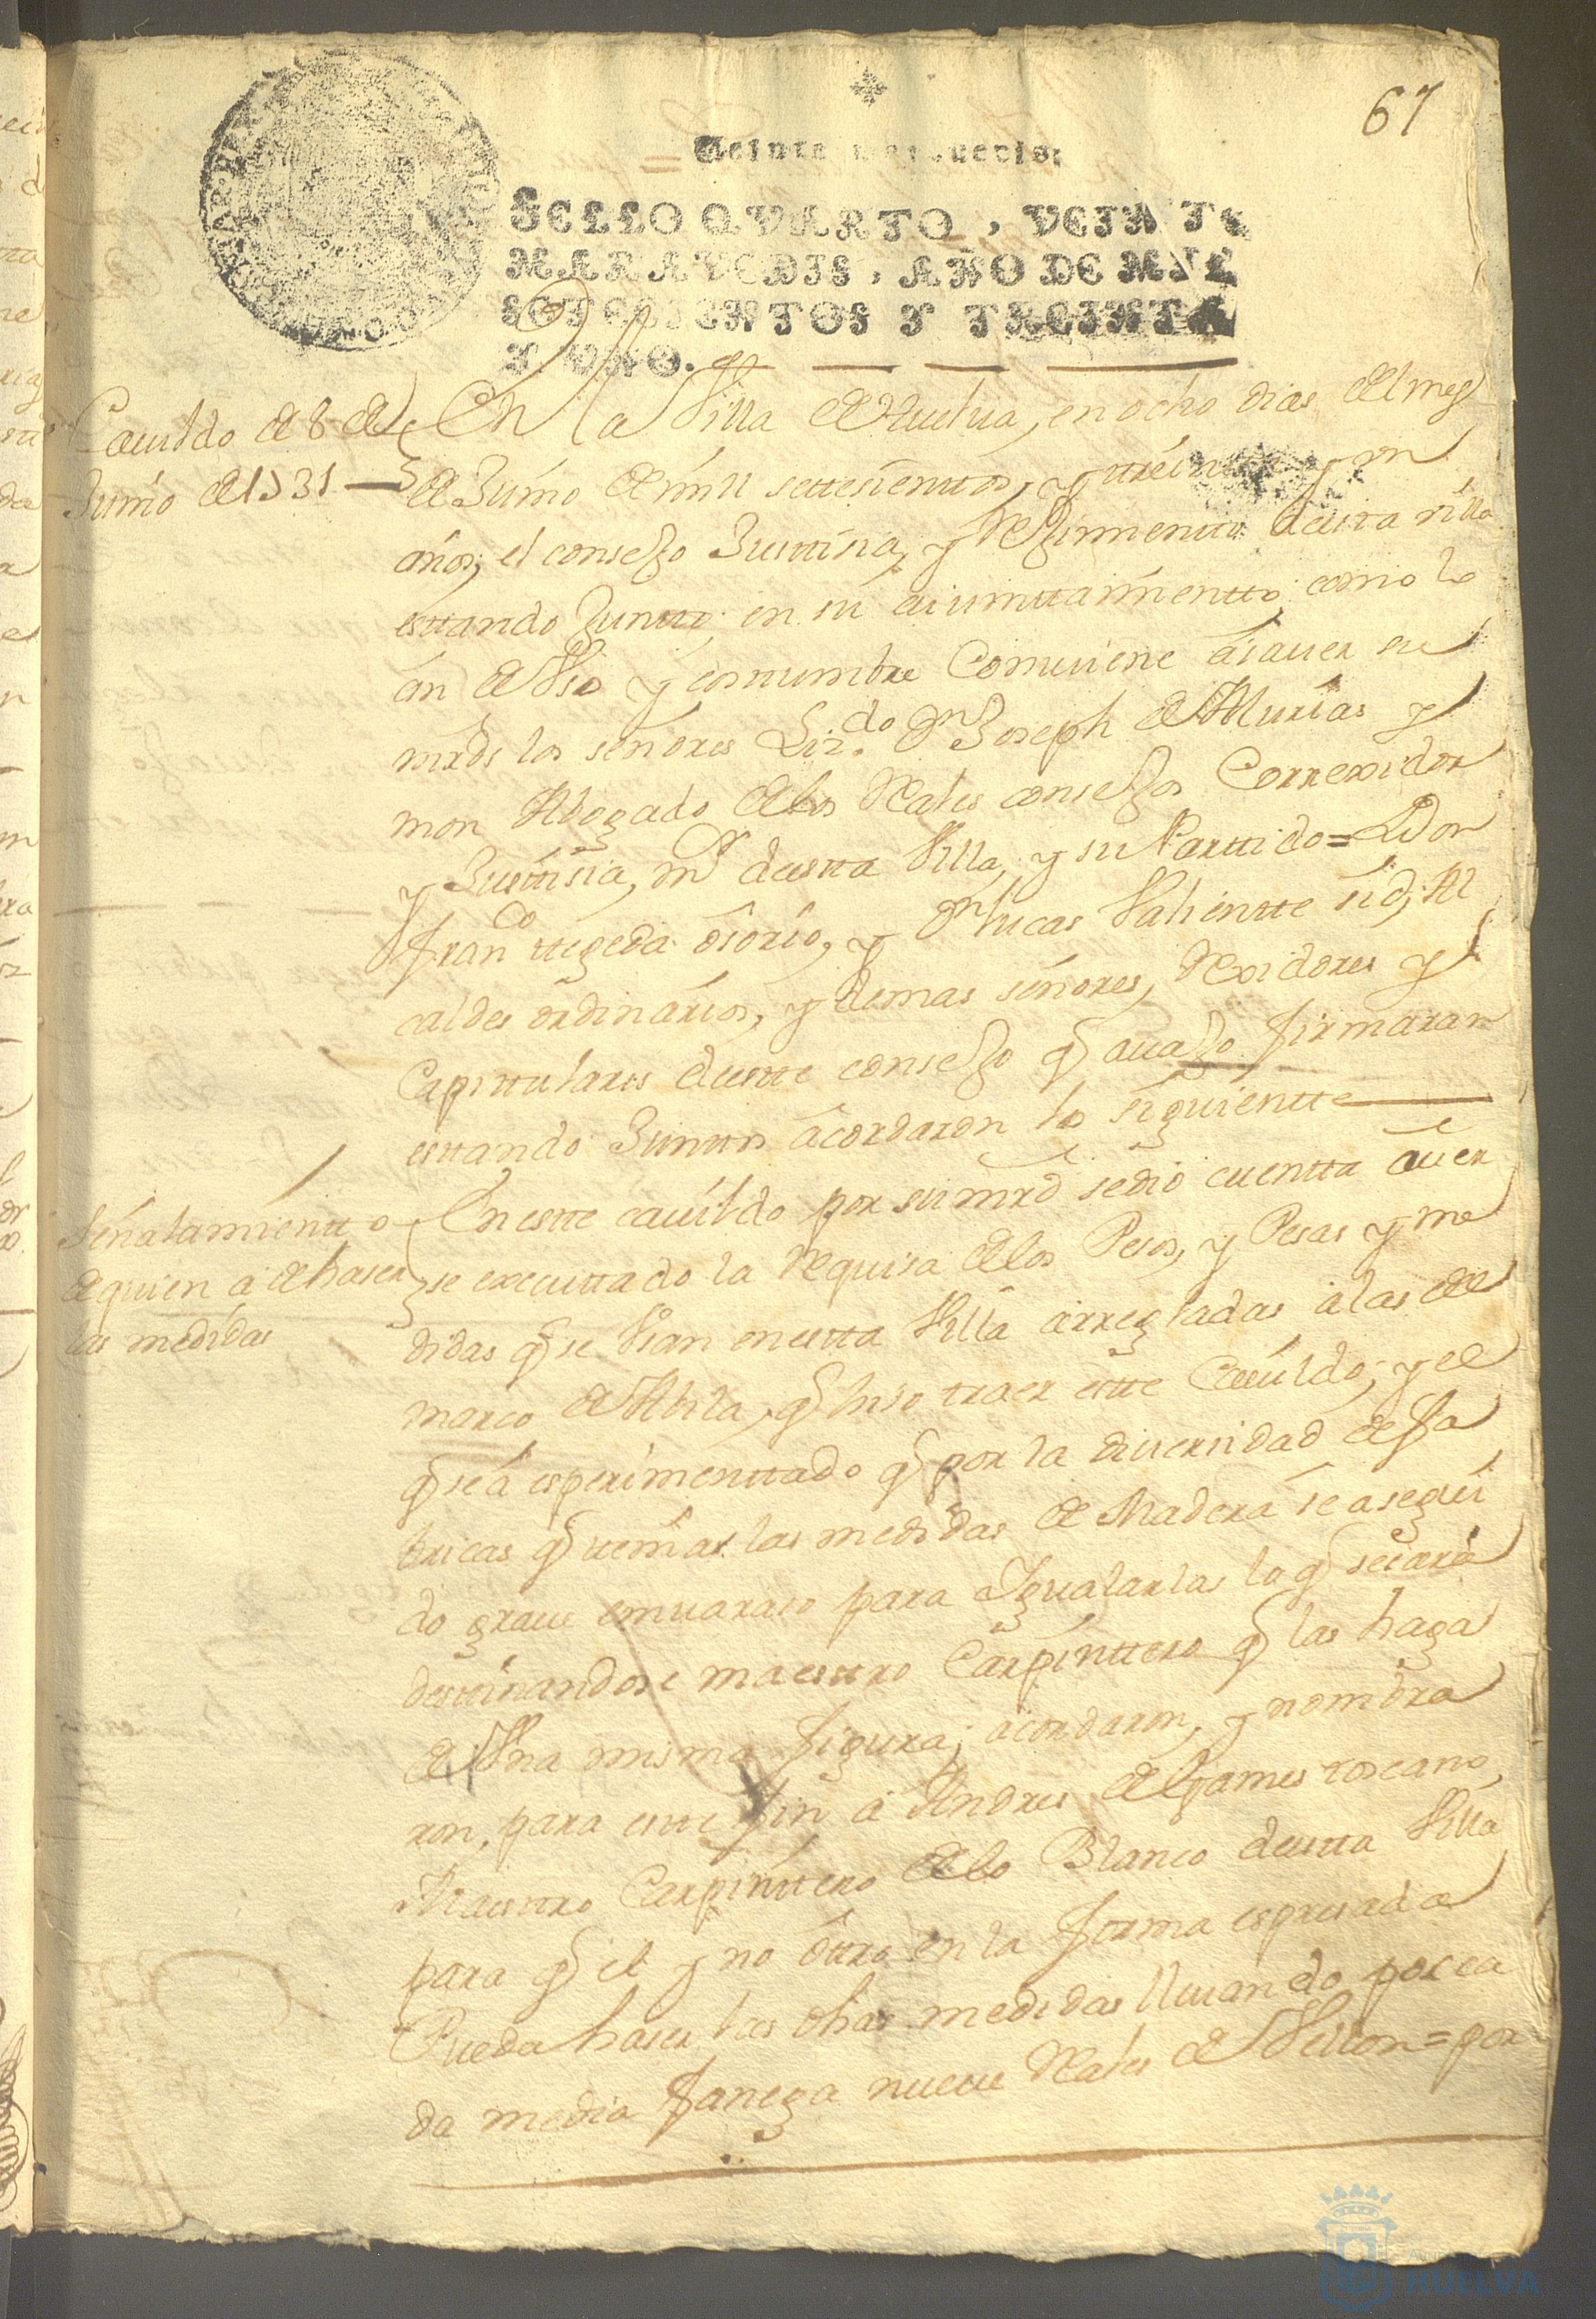 67
Veinte maravedis.
SELLO QVARTO, VEINTE
MARAVEDIS, AÑO DE MIL
SETECIENTOS Y TREINTA
Y VNO.
Cauildo de 8 de
Junio de 1731
En la Villa de Huelua, en ocho dias del mes
de Junio de mill settesienttos, y treintta y un
años, el consejo Justtisia, y Rejimentto desta villa
esttando Juntto en su aiunttamientto como lo
an de Vso y costtumbre Comuiene âsauer su
mrds los señores Liz.do Dn Joseph de Murias y
mon Abogado delos Reales consejos Correxidor
y Justtisia, mr destta Villa, y su Parttido = Don
Franco ttejeda ôsorio, y Dn lucas Valientte sid, Al
caldes ôrdinârios, y demas señores, Rexidores y
Capittulares destte consejo q auajo firmaran
esttando Junttos âcordaron lo siguientte
Señalamientto
de quien â de haser
las medidas
En estte cauildo por su mrd sedio cuentta âuer
se executtado la Requisa delos Pesos, y Pesas y me
didas q se Vsan en estta Villa ârregladas â las del
marco de Abila, q hiso traer estte Cauildo, y el
q se â esperimenttado q por la diuersidad de fa
bricas q ttenian las medidas de Madera se a segui
do graue emuaraso para Igualarlas lo q sesaria
desttinandose maesttro Carpinttero q las haga
de Vna misma figura; acordaron, y nombra
ron, para estte fin â Andres delgames toscano,
Maesttro Carpinttero delo Blanco destta Villa
para q el y no ôttro en la forma espresada
Pueda haser las dhas medidas lleuando por ca
da media fanega nueue Reales de Vellon = por
HUELVA